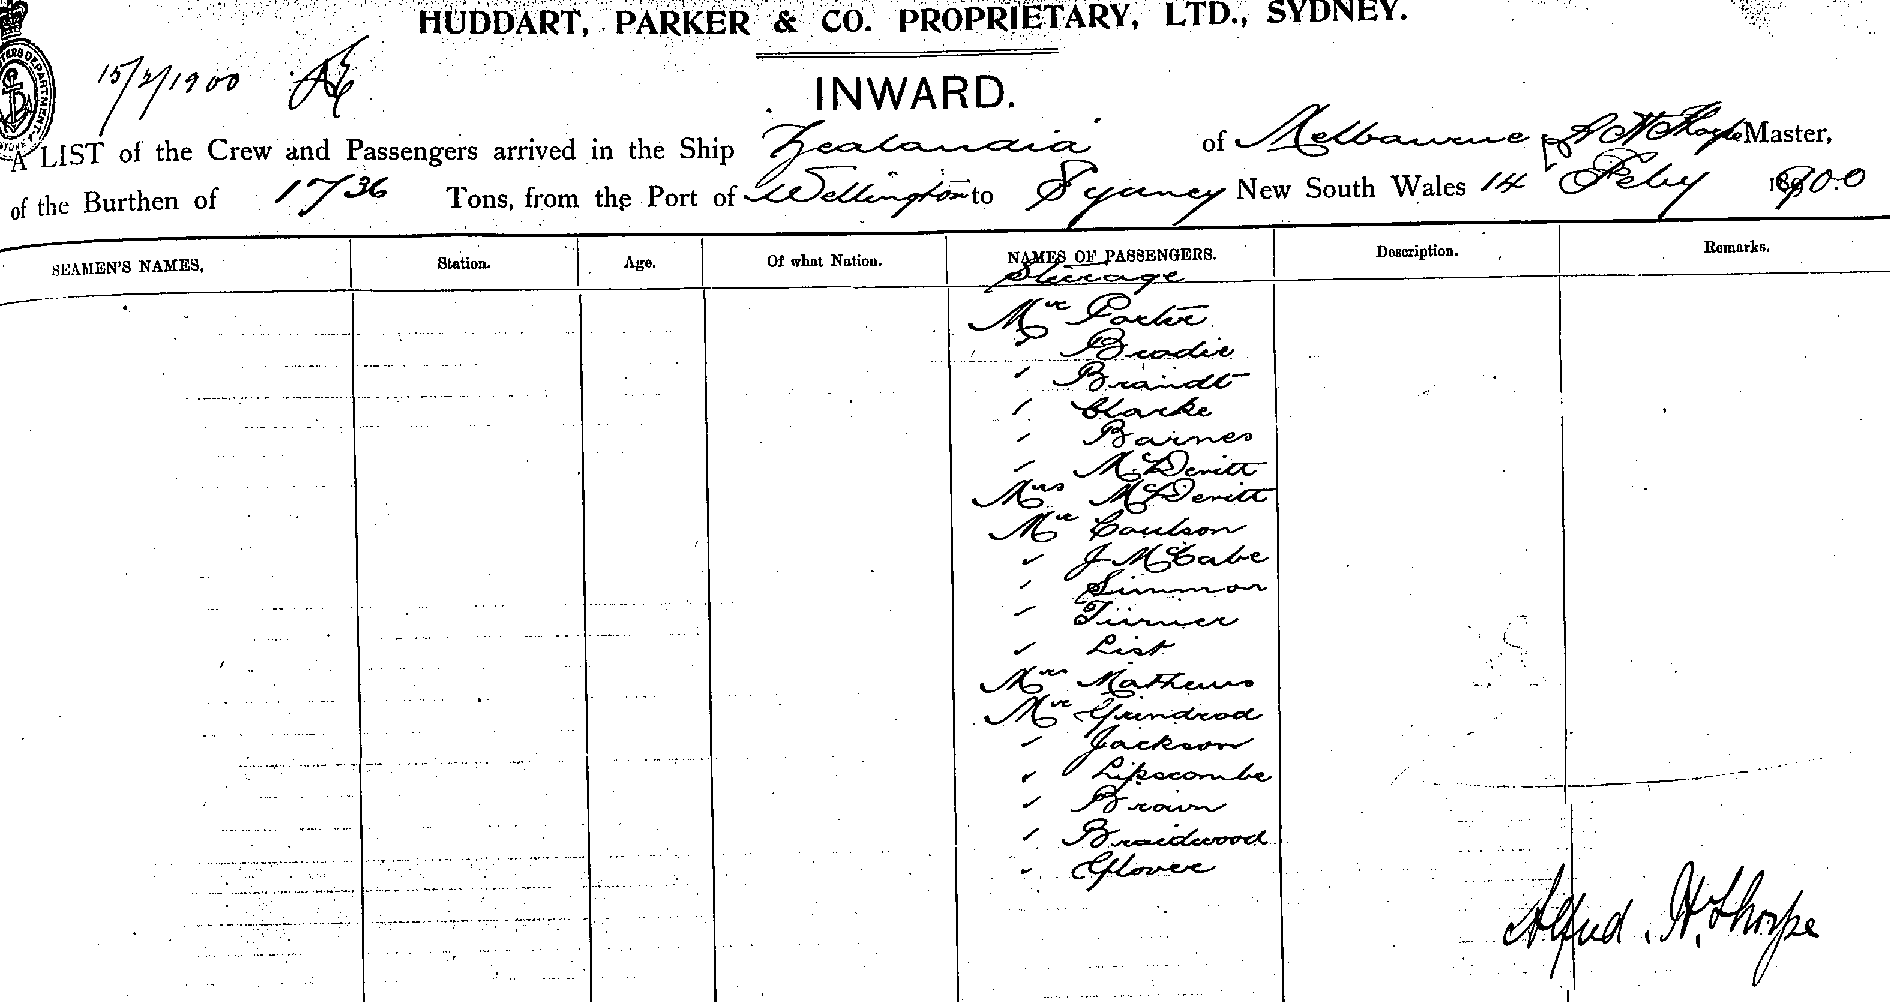 HUDDART, PARKER & CO. PROPRIETARY, LTD., SYDNEY.
15/2/1900
INWARD.
A LIST of the Crew and Passengers arrived in the Ship Zealandia of Melbourne A H Thorpe Master,
of the Burthen of 1736 Tons, from the Port of Wellington to Sydney New South Wales 14 Feby 1900
SEAMEN'S NAMES, Station. Age. Of what Nation. NAMES OF PASSENGERS. Description. Remarks.
Steerage
Mr Porter
" Brodie
" Brandt
" Clarke
" Barnes
" McDevitt
Mrs McDevitt
Mr Coulson
" J McCabe
" Simmon
" Turner
" List
Mrs Mathews
Mr Grindrod
" Jackson
" Lipscombe
" Brown
" Braidwood
" Glover
Alfred. H. Thorpe